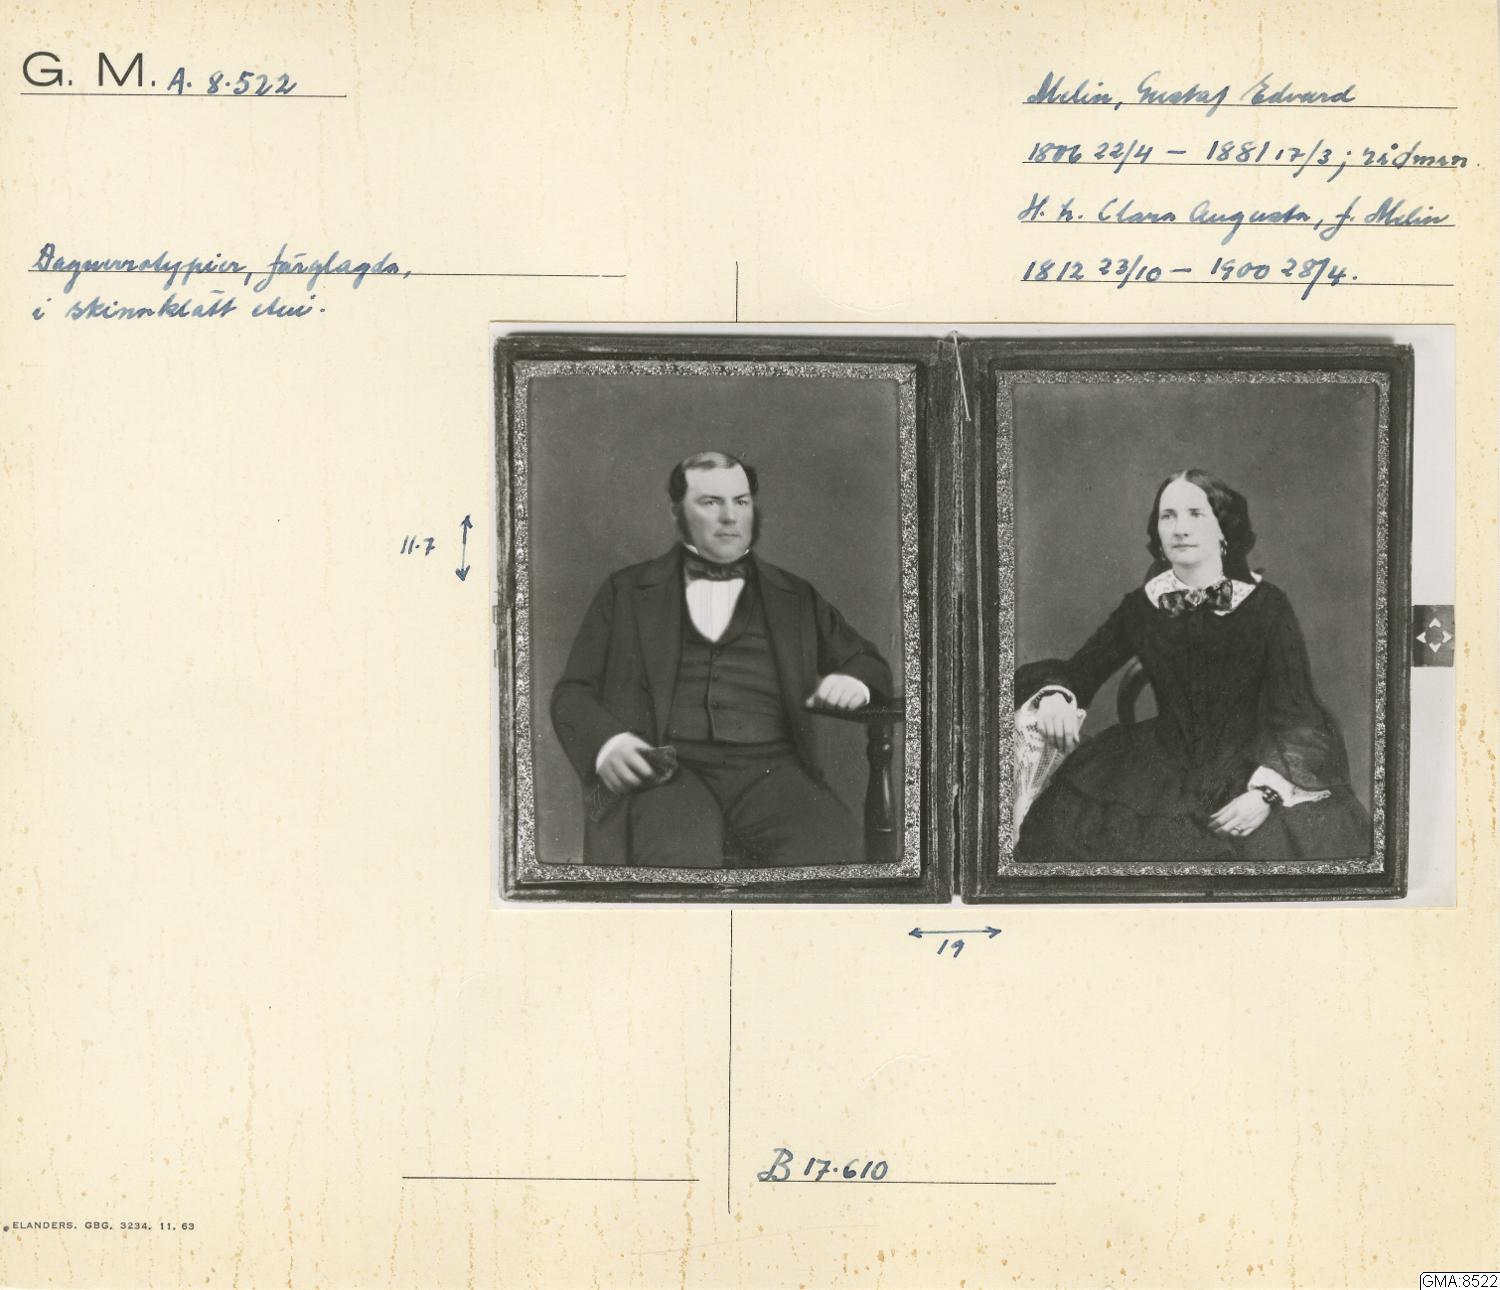 G. M. A. 8.522
Melin, Gustaf Edvard
1806 22/4 – 1881 17/3; rådman.
H. h. Clara Augusta, f. Melin
1812 23/10 – 1900 28/4.
Daguerrotypier, färglagda,
i skinnklätt etui.
11.7
19
B 17.610
ELANDERS. GBG. 3234. 11. 63
GMA:8522